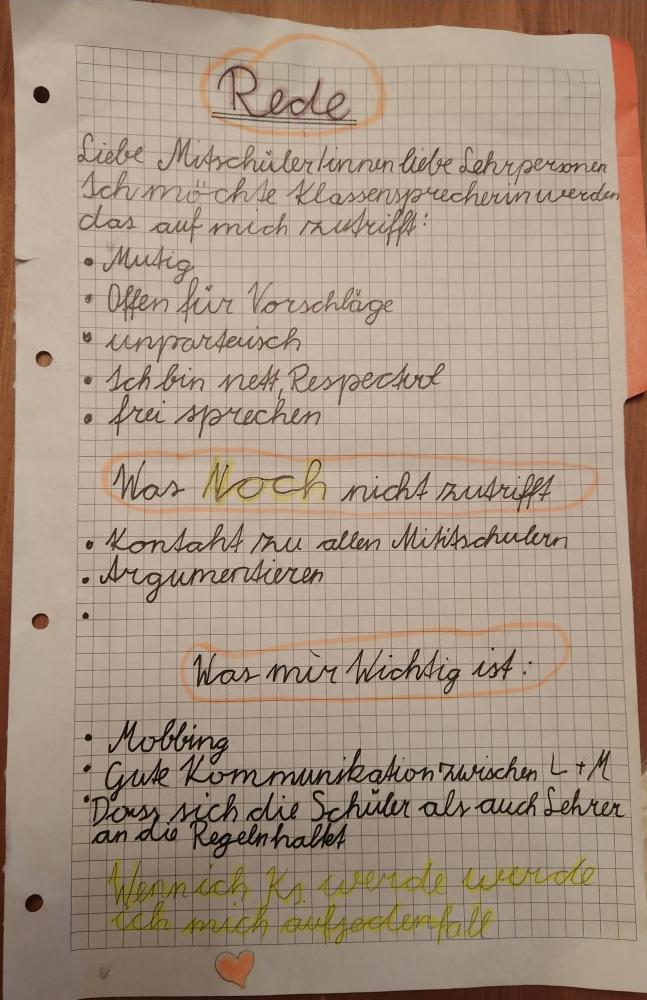 Rede
Liebe Mitschüler/innen liebe Lehrpersonen
Ich möchte Klassensprecherin werden
das auf mich zutrifft:
• Mutig
• Offen für Vorschläge
• unparteiisch
• Ich bin nett, Respectvol
• frei sprechen
Was Noch nicht zutrifft
• Kontaht zu allen Mititschulern
• Argumentieren
•
Was mir Wichtig ist:
• Mobbing
• Gute Kommunikation zwischen L + M
• Dass sich die Schüler als auch Lehrer
an die Regeln haltet
Wenn ich Ks. werde werde
ich mich aufjedenfall